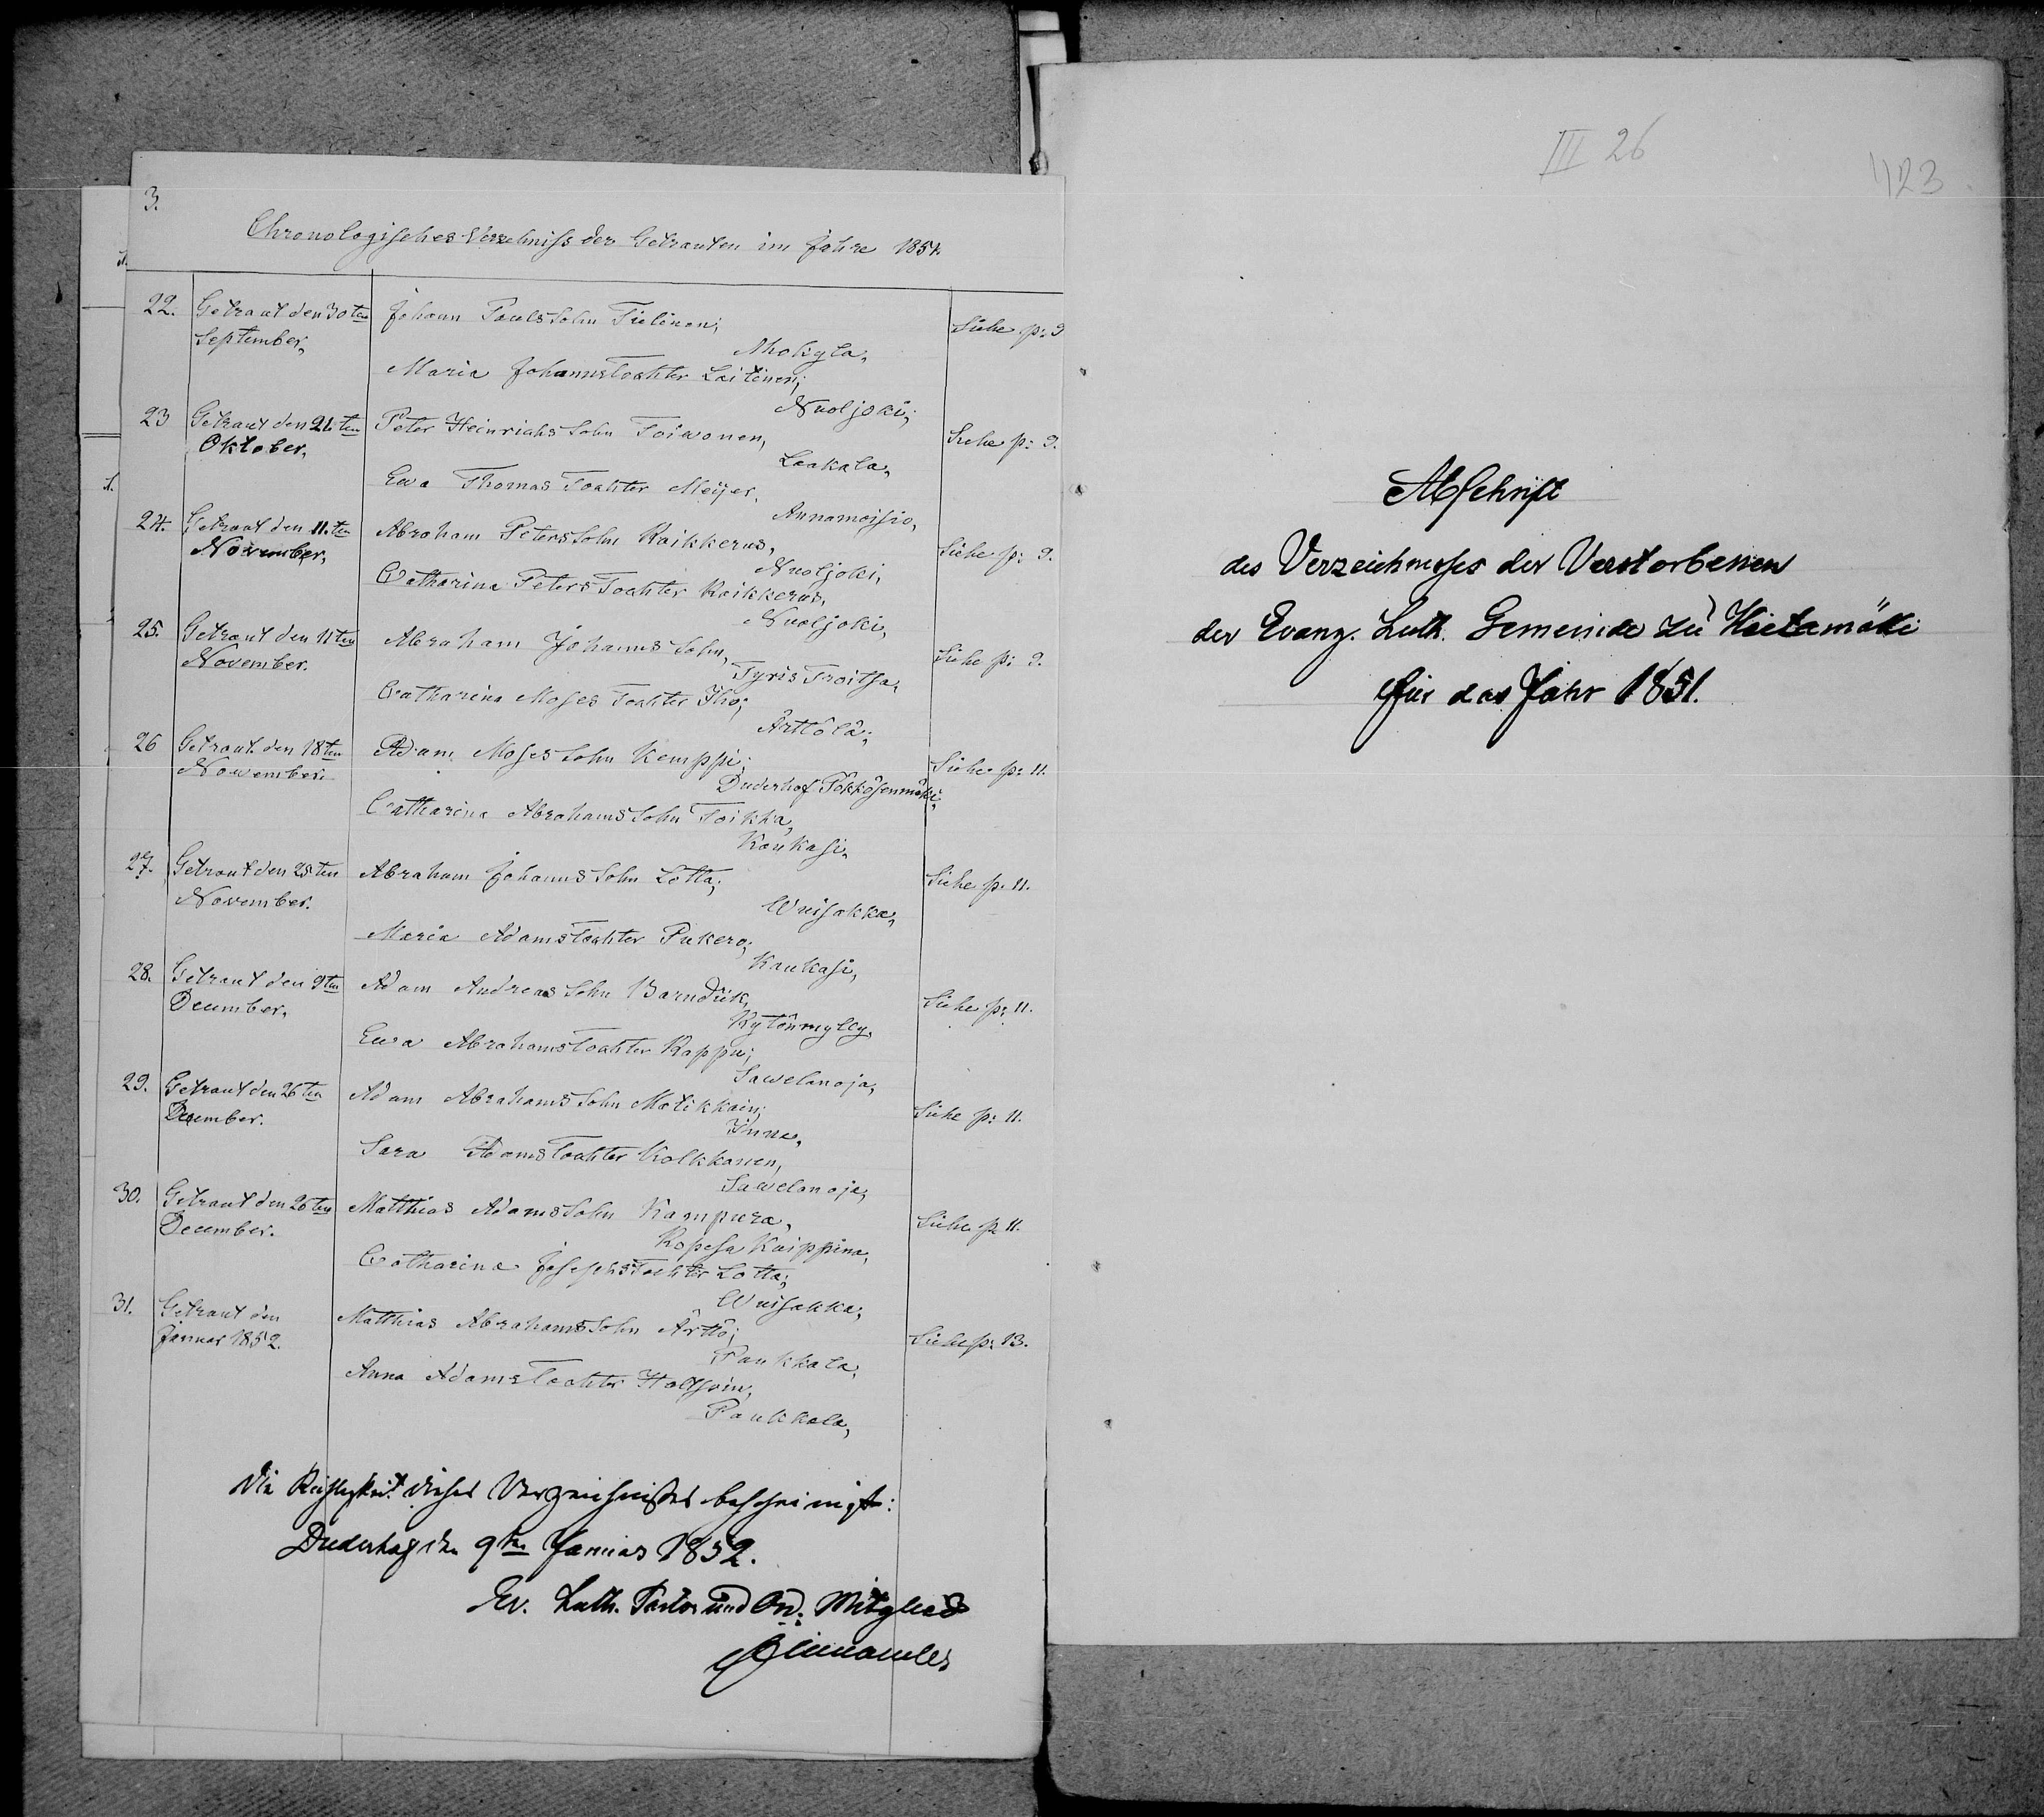 3.
Chronologisches Verzehniss der Getrauten im Jahre 1851.
22. Getraut den 30ten Johann Pauls Sohn Tielinen; Siehe p: 9
September, Ahokyla,
Maria Johanns Tochter Laitinen;
Nuoljoki;
23 Getraut den 21ten Peter Heinrichs Sohn Toiwonen, Siehe p: 9.
Oktober, Laakala,
Ewa Thomas Tochter Meijer,
Annamoisio,
24. Getraut den 11.ten Abraham Peters Sohn Kaikkerus, Siehe p: 9.
November, Nuoljoki,
Catharina Peters Tochter Kaikkerus,
Nuoljoki,
25. Getraut den 11ten Abraham Johanns Sohn, Siehe p: 9.
November. Tyris Troitsa,
Catharina Moses Tochter Iho;
Ärttölä;
26 Getraut den 18ten Adam Moses Sohn Kemppi; Siehe p: 11.
November. Duderhof Pökkösenmäki,
Catharina Abrahams Sohn Toikka,
Kaukasi,
27. Getraut den 25ten Abraham Johanns Sohn Lotta; Siehe p. 11.
November. Wuisakka,
Maria Adams Tochter Pukero;
Kaukasi,
28. Getraut den 9ten Adam Andreas Sohn Barndük, Siehe p: 11.
December, Kytönmylly,
Ewa Abrahams Tochter Rappu;
Sawelanoja,
29. Getraut den 26ten Adam Abrahams Sohn Matikkain; Siehe p: 11.
December. Inne,
Sara Adams Tochter Kolkkanen,
Sawelanoja,
30. Getraut den 26ten Matthias Adams Sohn Kampura, Siehe p 11.
December. Ropsha Kuippina,
Catharina Josephs Tochter Lotta;
Wuisakka,
31. Getraut den Matthias Abrahams Sohn Ärttö; Siehe p: 13.
Januar 1852. Paukkala,
Anna Adams Tochter Holtsoin,
Paukkala,
Die Richtigkeit dieses Verzeichnisses bescheinigt:
Duderhof den 9ten Januar 1852.
Ev. Luth. Pastor und Or. Mitglied
III 26
423
Abschrift
des Verzeichnises der Verstorbenen
der Evang. Luth. Gemeinde zu Hietamäki
für das Jahr 1851.